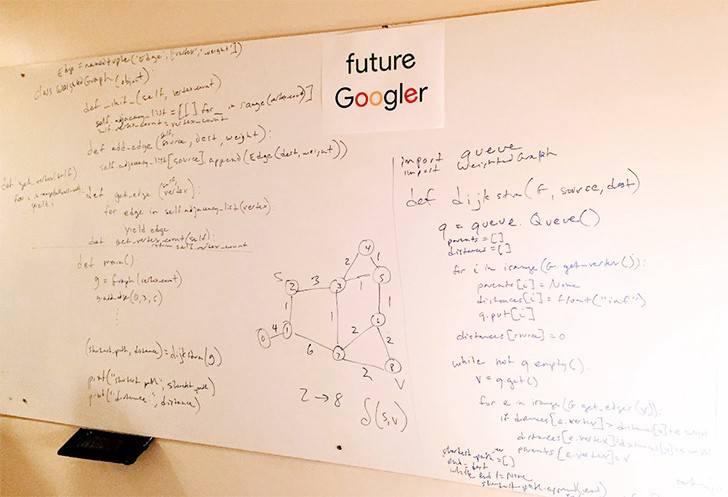 Edge = namedtuple('Edge', ['vertex', 'weight'])
class WeightedGraph(object):
def _init_(self, vertex_count):
self.adjacency_list = [[] for _ in range(vertex_count)]
self.vertex_count = vertex_count
def add_edge(self, source, dest, weight):
self.adjacency_list[source].append(Edge(dest, weight))
def get_vertex(self)
yield i
def get_edge(self, vertex):
for edge in self.adjacency_list(vertex)
yield edge
def get_vertex_count(self):
return self.vertex_count
def main()
g = Graph(vertex_count
(shortest_path, distance) = dijkstra(g)
print("shortest path", shortest_path)
print("distance", distance)
future
Googler
S
4
2
1
2
3
3
1
5
1
1
1
1
0
4
1
2
6
7
2
8
2
V
2 → 8
δ(s,v)
import queue
import WeightedGraph
def dijkstra(G, source, dest)
q = queue.Queue()
parents = []
distances = []
for i in irange(G.get_vertex()):
parents[i] = None
distances[i] = float("inf")
q.put[i]
distances[source] = 0
while not q.empty().
v = q.get()
for e in irange(G.get_edge(v)):
if distances[e.vertex] > distances[v] +
distances[e.vertex] = distances[v] +
parents[e.vertex] = v
shortest_path = []
end = dest
while end != None
shortest_path.append(end)